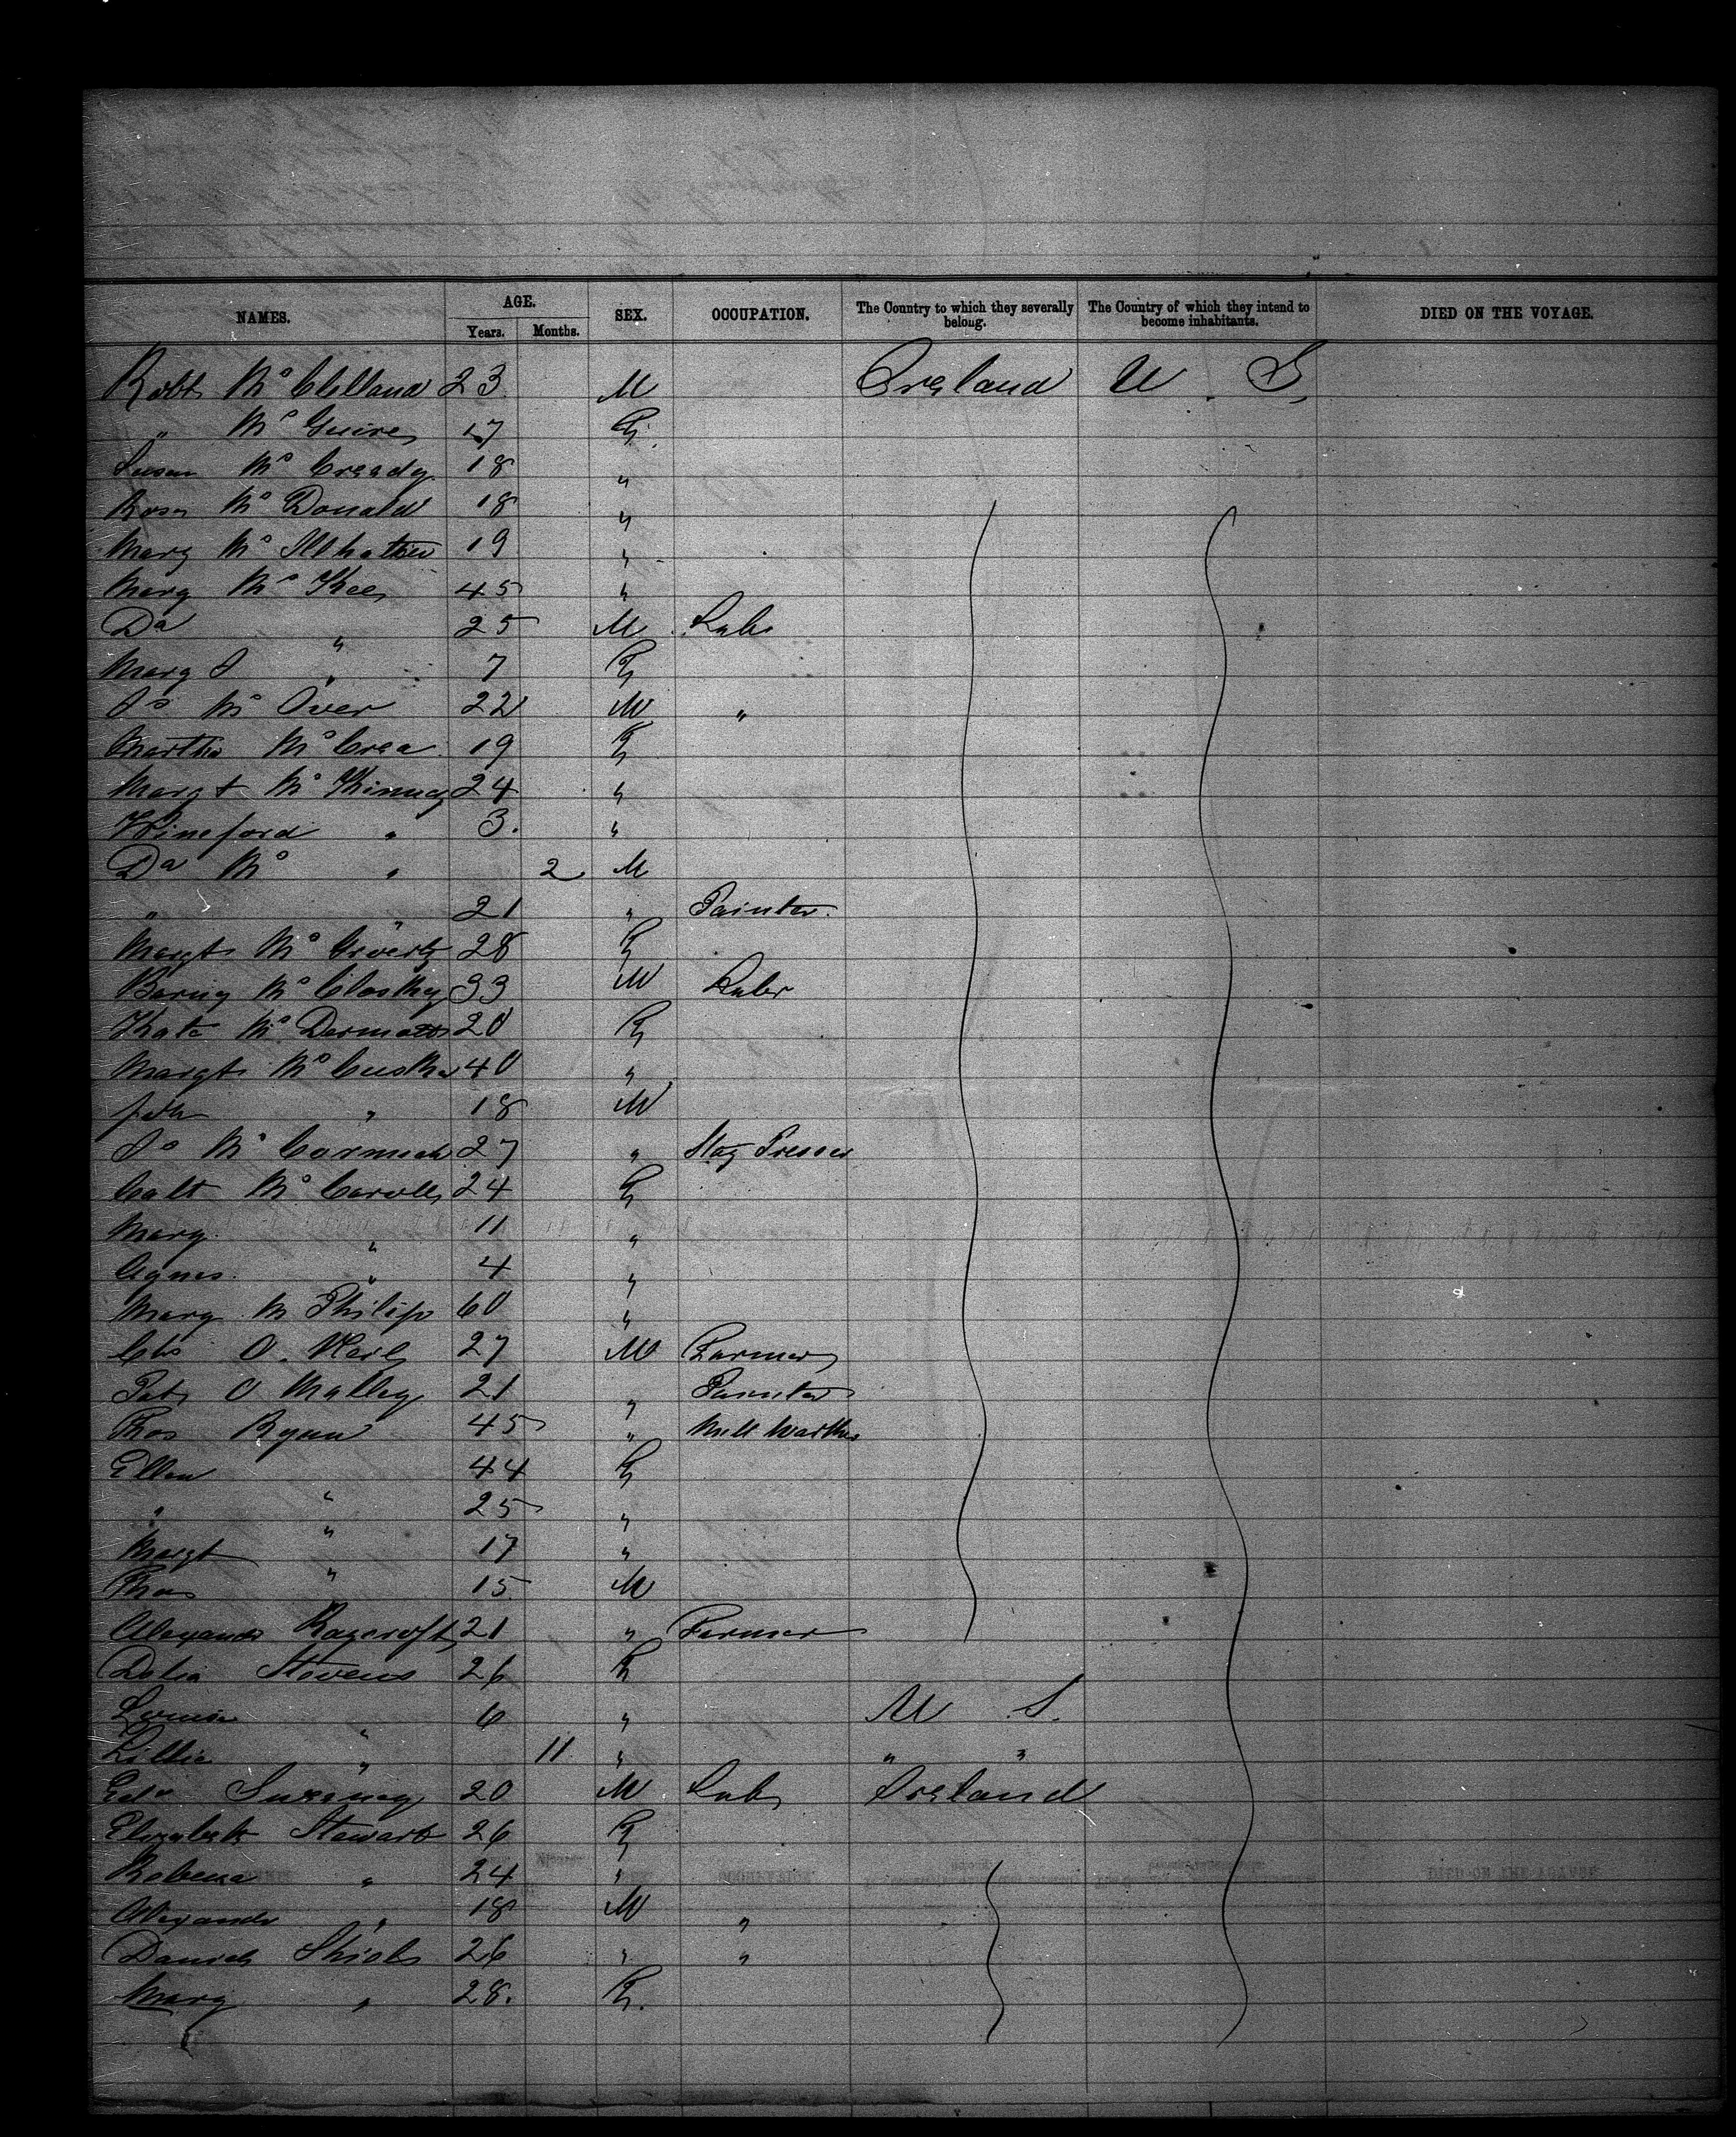 NAMES. AGE. Years. Months. SEX. OCCUPATION. The Country to which they severally belong. The Country of which they intend to become inhabitants. DIED ON THE VOYAGE.
Robt Mc Clelland 23 M Ireland U. S.
" Mc Guire 17 F
Susan Mc Cready 18 "
Rose Mc Donald 18 "
Mary Mc 19 "
Mary Mc Kee 45 "
Da " 25 M Lab
Mary J " 7 F
Js Mc Iver 22 M "
Martha Mc Crea 19 F
Margt Mc Kinney 24 "
Wineford " 3 "
Da Mc " 2 M
" " 21 " Painter
Margt Mc 28 F
Barny Mc Closkey 33 M Labr
Kate Mc Dermott 20 F
Margt Mc Cusker 40 "
" 18 M
Js Mc Cormick 27 " Presser
Mc Caroll 24 F
Mary " 11 "
Agnes " 4 "
Mary M Philips 60 "
Chs O. 27 M Farmer
Pat O Malley 21 " Painter
Thos Ryan 45 " Mill Worker
Ellen " 44 F
" " 25 "
Margt " 17 "
Thos 15 M
Alexander Raycroft 21 " Farmer
Delia Stevens 26 F
Louisa " 6 " U S.
Lillie " 11 " " "
Edw Sweeney 20 M Lab Ireland
Elizabeth Stewart 26 F
Rebecca " 24 "
Alexander " 18 M "
Daniel Shiels 26 " "
Mary " 28. F.